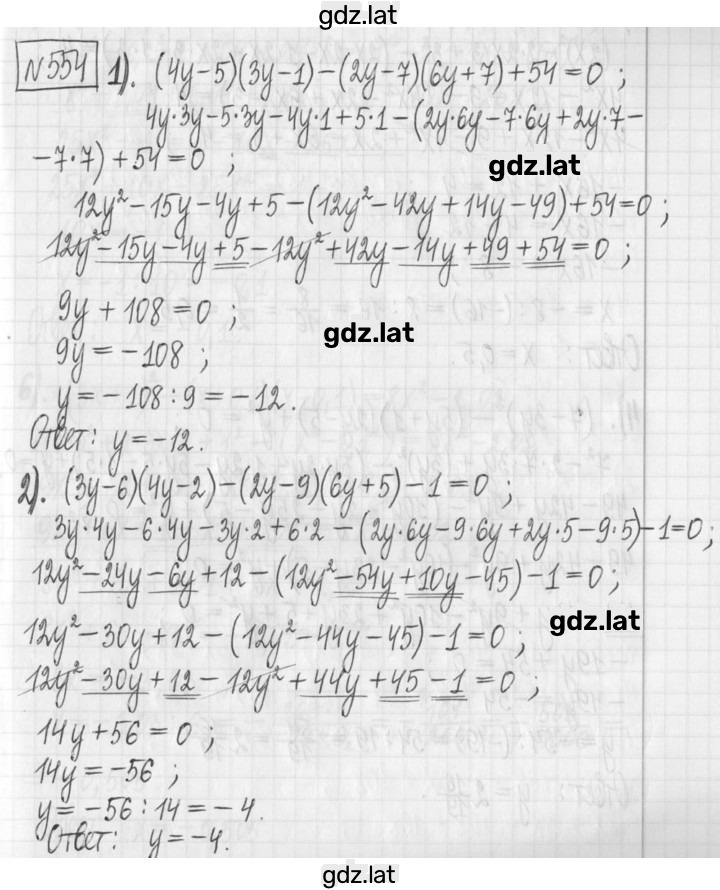 gdz.lat
№554 1). (4y-5)(3y-1)-(2y-7)(6y+7)+54=0 ;
4y·3y-5·3y-4y·1+5·1-(2y·6y-7·6y+2y·7-
-7·7)+54=0 ;
gdz.lat
12y²-15y-4y+5-(12y²-42y+14y-49)+54=0 ;
12y²-15y-4y+5-12y²+42y-14y+49+54=0 ;
9y+108=0 ;
gdz.lat
9y=-108 ;
y=-108:9=-12.
Ответ: y=-12.
2). (3y-6)(4y-2)-(2y-9)(6y+5)-1=0 ;
3y·4y-6·4y-3y·2+6·2-(2y·6y-9·6y+2y·5-9·5)-1=0;
12y²-24y-6y+12-(12y²-54y+10y-45)-1=0 ;
gdz.lat
12y²-30y+12-(12y²-44y-45)-1=0 ;
12y²-30y+12-12y²+44y+45-1=0 ;
14y+56=0 ;
14y=-56 ;
y=-56:14=-4.
Ответ: y=-4.
gdz.lat